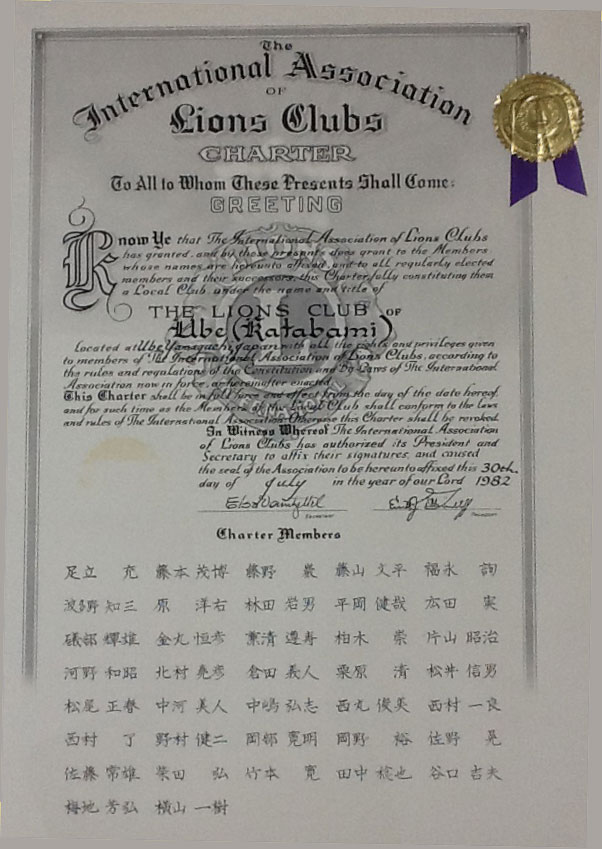 The
International Association
OF
Lions Clubs
CHARTER
To All to Whom These Presents Shall Come:
GREETING
Know Ye that The International Association of Lions Clubs
has granted, and by these presents does grant to the Members
whose names are hereunto affixed, and to all regularly elected
members and their successors, this Charter, fully constituting them
a Local Club under the name and title of
THE LIONS CLUB OF
Ube (Katabami)
Located at Ube Yamaguchi Japan with all the rights and privileges given
to members of The International Association of Lions Clubs, according to
the rules and regulations of the Constitution and By-Laws of The International
Association now in force, or hereinafter enacted.
This Charter shall be in full force and effect from the day of the date hereof,
and for such time as the Members of the Local Club shall conform to the laws
and rules of The International Association. Otherwise this Charter shall be revoked.
In Witness Whereof, The International Association
of Lions Clubs has authorized its President and
Secretary to affix their signatures, and caused
the seal of the Association to be hereunto affixed this 30th
day of July in the year of our Lord 1982
SECRETARY PRESIDENT
Charter Members
足立 充 藤本 茂博 藤野 巌 藤山 文平 福永 詢
波多野 知三 原 洋右 林田 岩男 平岡 健哉 広田 実
礒部 輝雄 金丸 恒彦 兼清 遵寿 柏木 崇 片山 昭治
河野 和昭 北村 堯彦 倉田 義人 栗原 清 松井 信男
松尾 正春 中河 美人 中嶋 弘志 西丸 俊美 西村 一良
西村 了 野村 健二 岡部 寛明 岡野 裕 佐野 晃
佐藤 常雄 柴田 弘 竹本 寛 田中 也 谷口 吉夫
梅地 芳弘 横山 一樹